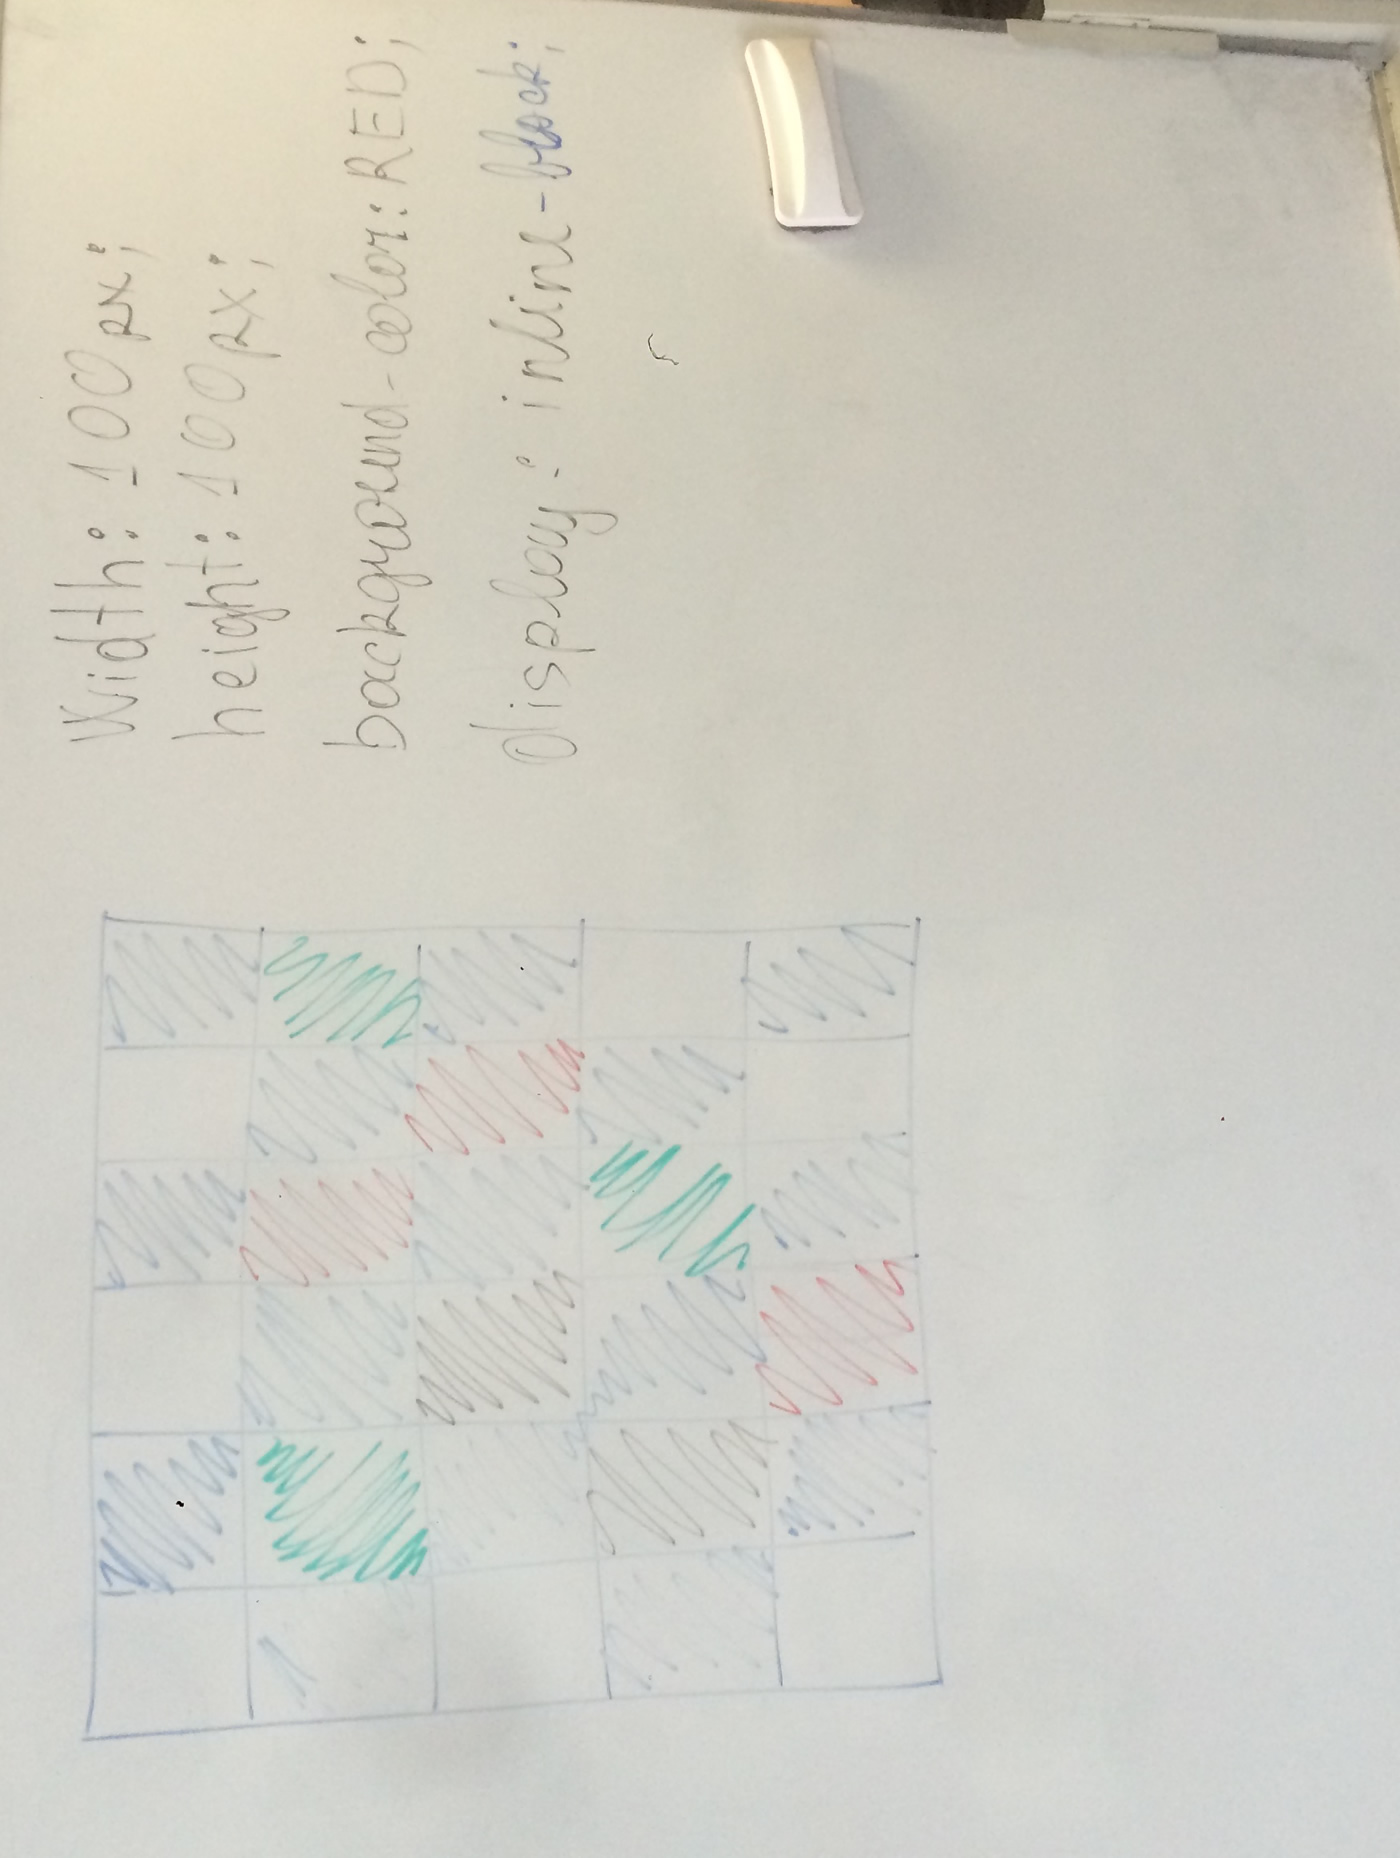 Width: 100px;
height: 100px;
background-color: RED;
display: inline-block;